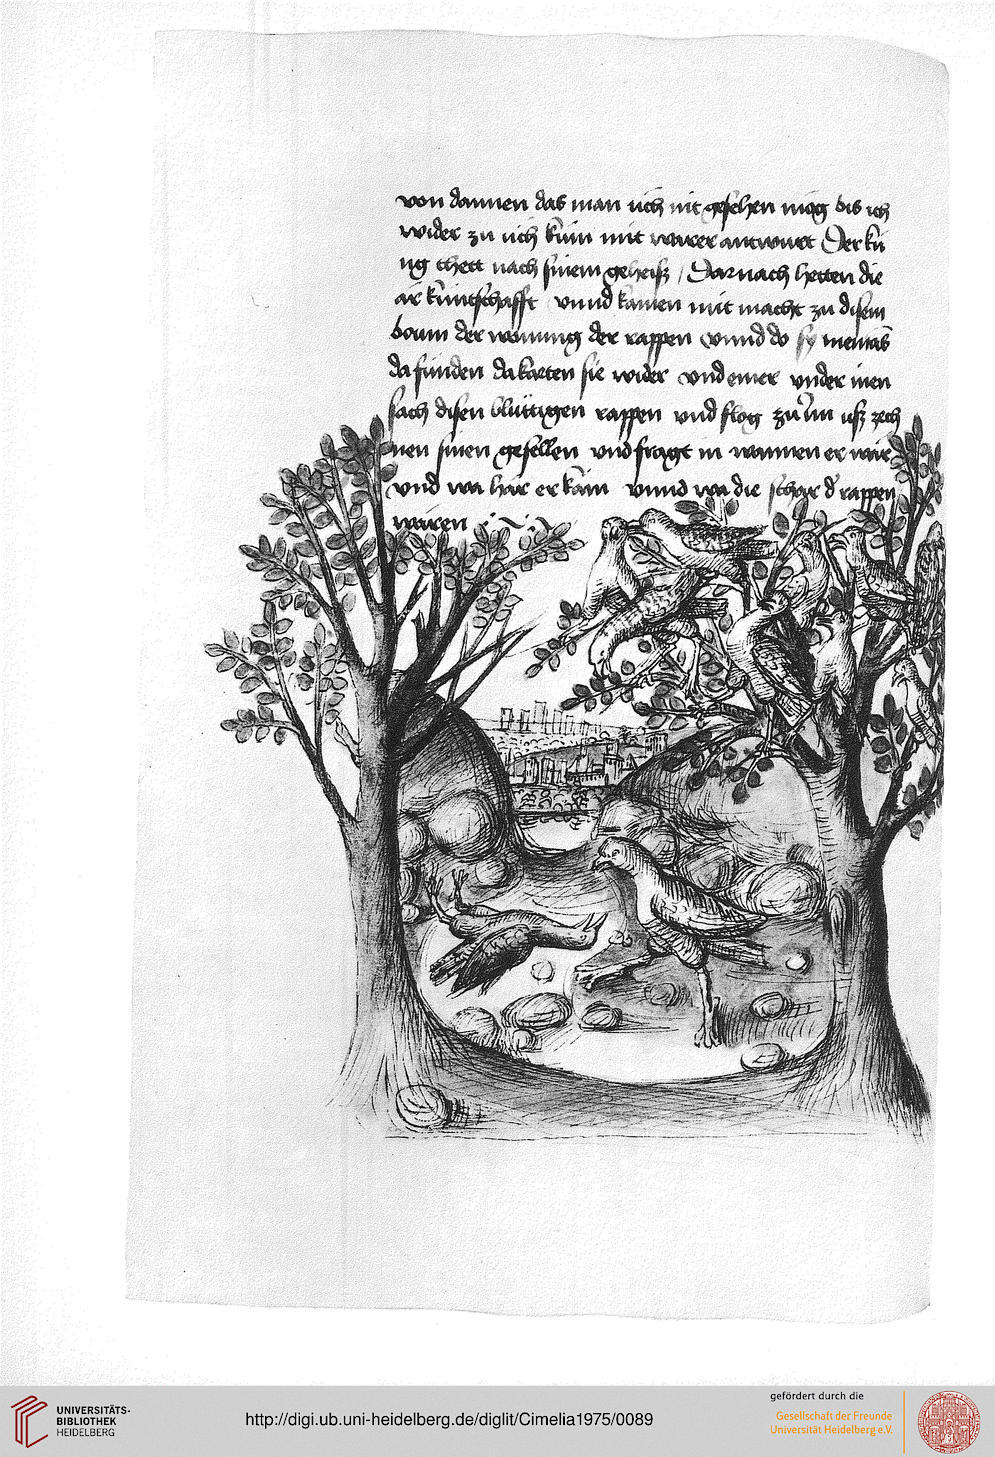 von dannen das man üch nit gesehen mög bis ich
wider zu üch kum mit warer antwurt Der kü
ng thett nach sinem geheisz / Darnach hetten die
ar kuntschafft vnnd kamen mit macht zu disem
boum der wonung der rappen vnnd do sy niemās
da funden da karten sie wider vnd einer vnder inen
sach disen blüttigen rappen vnd flog zu im usz zech
nen sinen gesellen vnd fragt in wannen er wār
vnd wa hār er kām vnnd wa die schar d' rappen
wāren
UNIVERSITÄTS-
BIBLIOTHEK
HEIDELBERG
http://digi.ub.uni-heidelberg.de/diglit/Cimelia1975/0089
gefördert durch die
Gesellschaft der Freunde
Universität Heidelberg e.V.